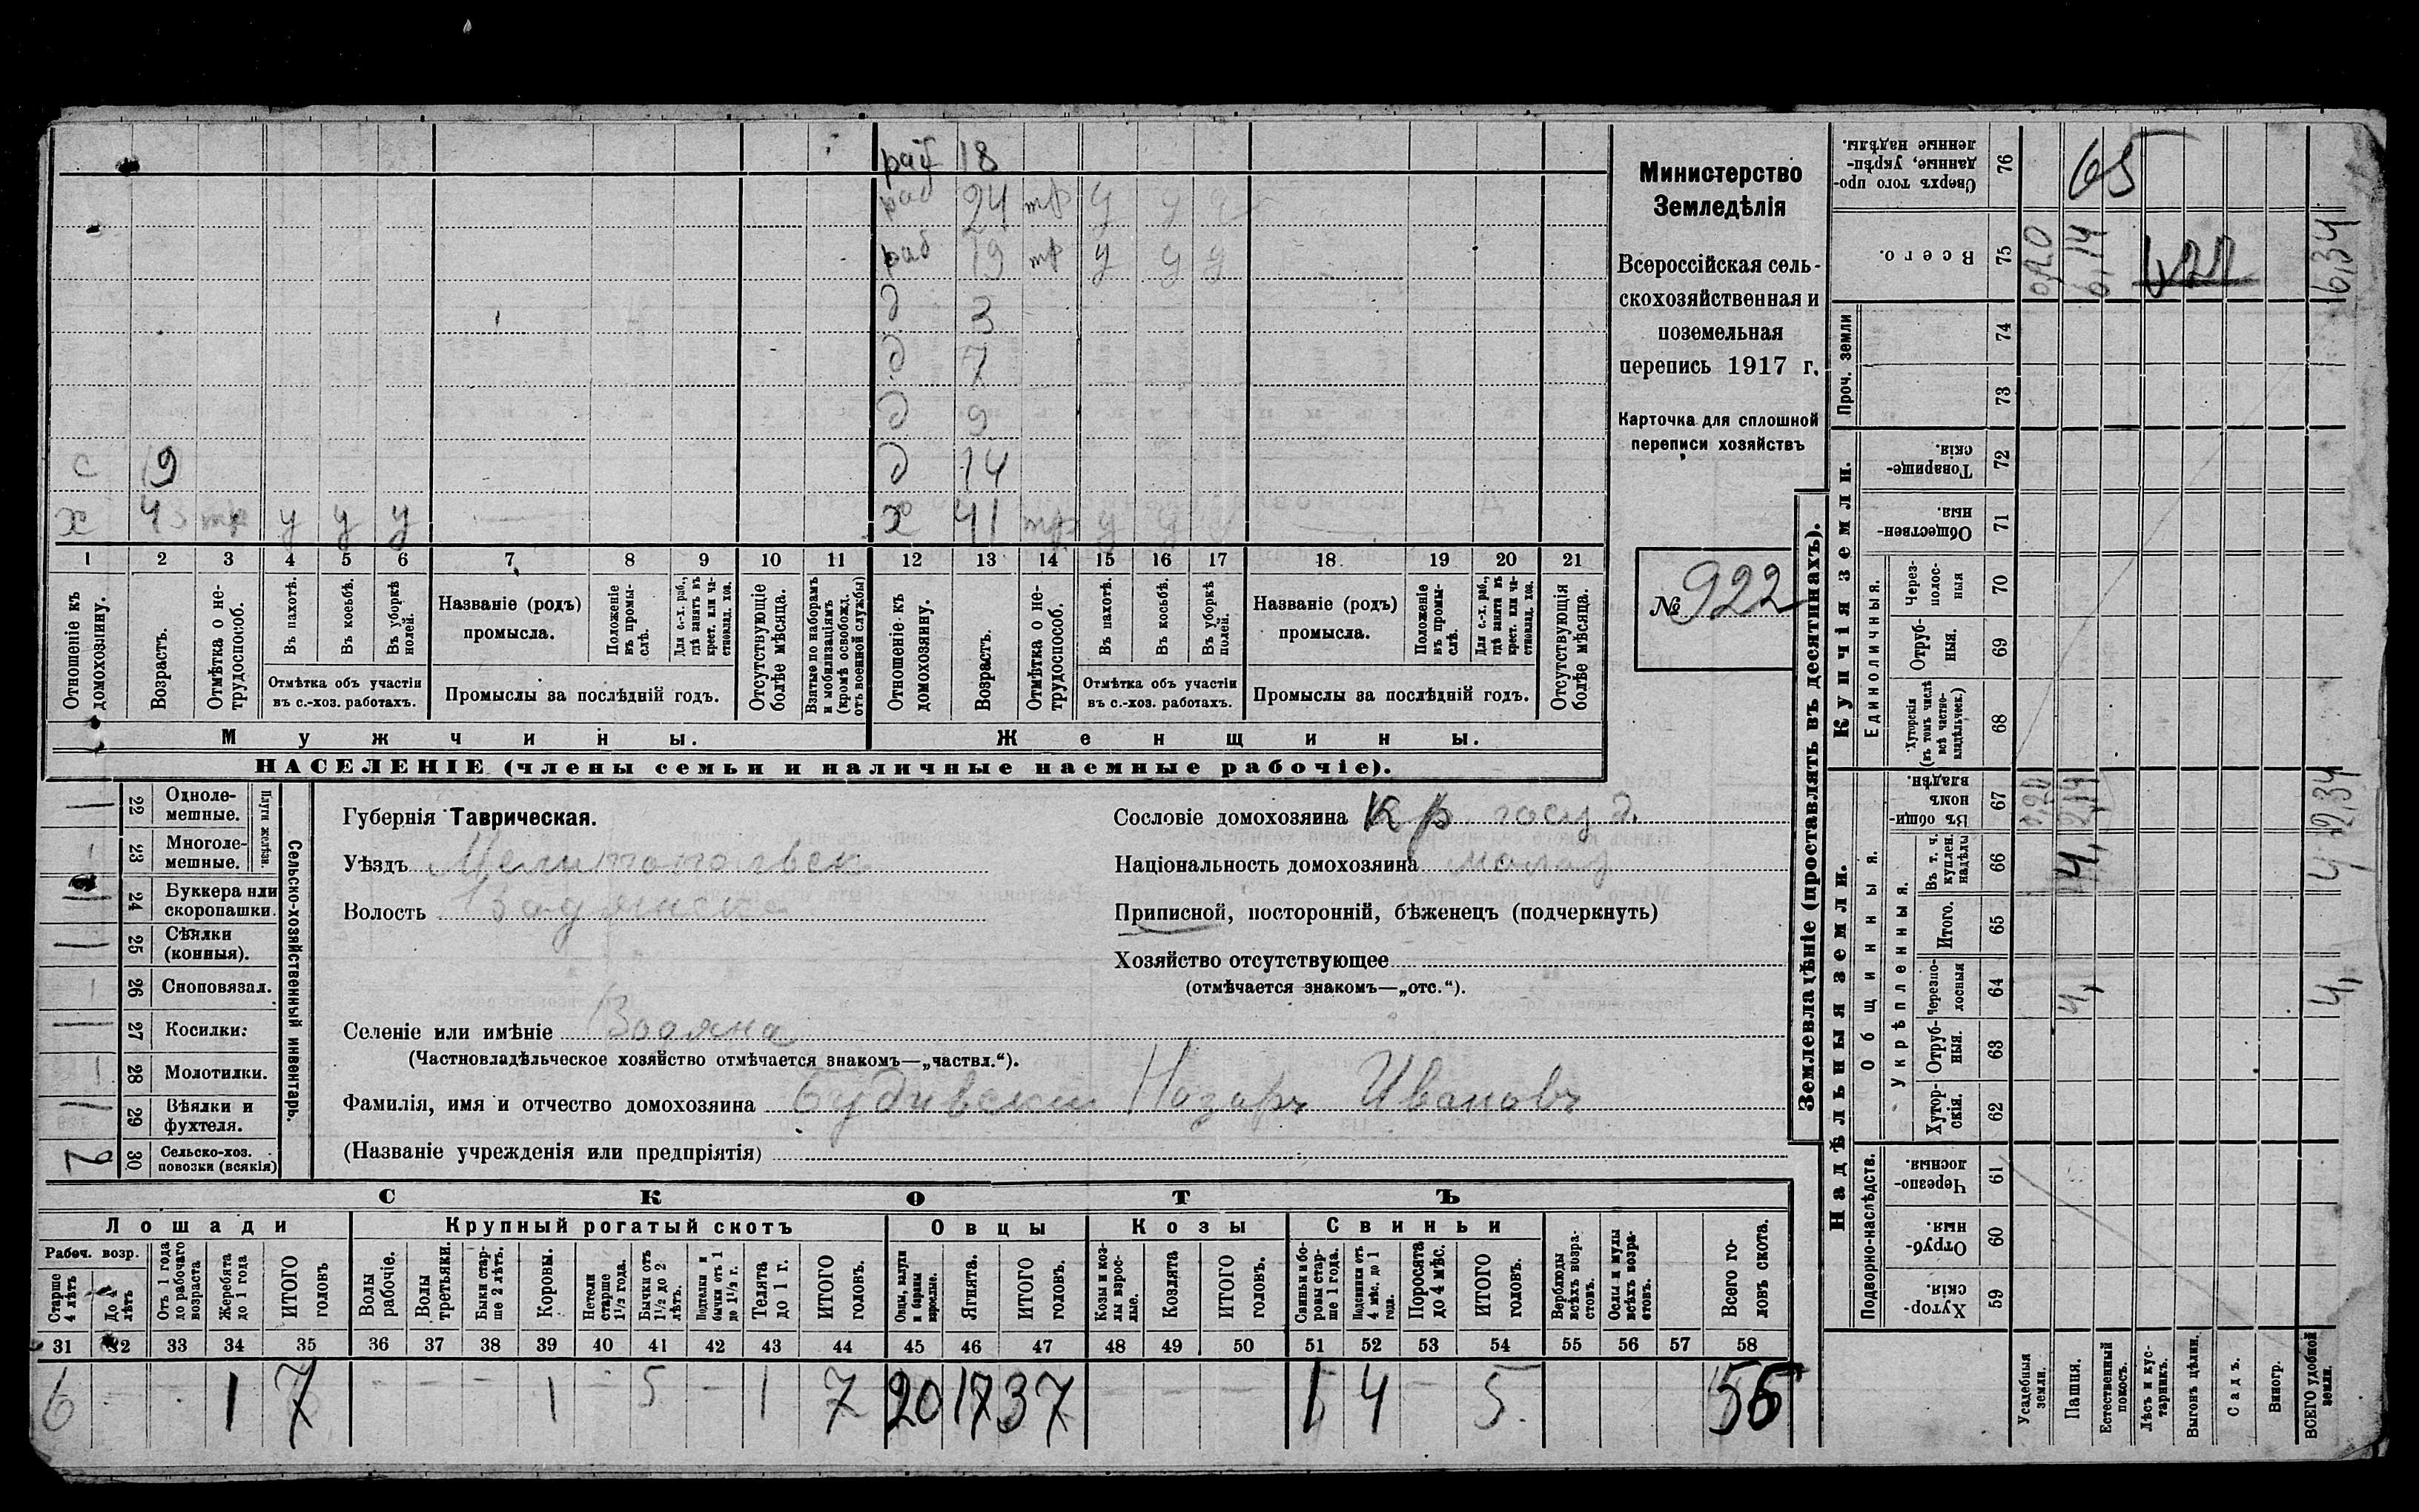 раб 18
раб 24 тр у у у
раб 19 тр у у у
д 3
д 7
д 9
с 19 д 14
х 43 тр у у у х 41 тр у у
1 2 3 4 5 6 7 8 9 10 11 12 13 14 15 16 17 18 19 20 21
Отношеніе къ домохозяину.
Возрастъ.
Отмѣтка о нетрудоспособ.
Въ пахотѣ.
Въ косьбѣ.
Въ уборкѣ полей.
Отмѣтка объ участіи
въ с.-хоз. работахъ.
Названіе (родъ)
промысла.
Положеніе въ промыслѣ.
Для с.-х. раб., гдѣ занятъ въ крест. или частновлад. хоз.
Промыслы за послѣдній годъ.
Отсутствующіе болѣе мѣсяца.
Взятые по наборамъ и мобилизаціямъ (кромѣ освобожд. отъ военной службы)
Отношеніе къ домохозяину.
Возрастъ.
Отмѣтка о нетрудоспособ.
Въ пахотѣ.
Въ косьбѣ.
Въ уборкѣ полей.
Отмѣтка объ участіи
въ с.-хоз. работахъ.
Названіе (родъ)
промысла.
Положеніе въ промыслѣ.
Для с.-х. раб., гдѣ занята въ крест. или частновлад. хоз.
Промыслы за послѣдній годъ.
Отсутствующія болѣе мѣсяца.
Мужчины. Женщины.
НАСЕЛЕНІЕ (члены семьи и наличные наемные рабочіе).
Министерство
Земледѣлія
Всероссійская сель-
скохозяйственная и
поземельная
перепись 1917 г.
Карточка для сплошной
переписи хозяйствъ
№ 922
Сельско-хозяйственный инвентарь.
Плуги желѣзн.
1 22 Одноле-
мешные.
1 23 Многоле-
мешные.
1 24 Буккера или
скоропашки.
1 25 Сѣялки
(конныя).
1 26 Сноповязал.
1 27 Косилки.
1 28 Молотилки.
1 29 Вѣялки и
фухтеля.
30 Сельско-хоз.
повозки (всякія)
Губернія Таврическая.
Уѣздъ Мелитопольск
Волость
Селеніе или имѣніе
(Частновладѣльческое хозяйство отмѣчается знакомъ—„частвл.“).
Фамилія, имя и отчество домохозяина Назаръ Ивановъ
(Названіе учрежденія или предпріятія)
Сословіе домохозяина Кр госуд.
Національность домохозяина малор
Приписной, посторонній, бѣженецъ (подчеркнуть)
Хозяйство отсутствующее
(отмѣчается знакомъ—„отс.“).
СКОТЪ
Лошади Крупный рогатый скотъ Овцы Козы Свиньи
Рабоч. возр.
Старше 4 лѣтъ
До 4 лѣтъ
Отъ 1 года до рабочаго возраста
Жеребята до 1 года
ИТОГО головъ
Волы рабочіе.
Волы третьяки.
Быки старше 2 лѣтъ.
Коровы.
Нетели старше 1½ года.
Бычки отъ 1½ до 2 лѣтъ.
Подтелки и бычки отъ 1 до 1½ г.
Телята до 1 г.
ИТОГО головъ.
Овцы, валухи и бараны взрослые.
Ягнята.
ИТОГО головъ.
Козы и козлы взрослые.
Козлята
ИТОГО головъ.
Свиньи и боровы старше 1 года.
Подсвинки отъ 4 мѣс. до 1 года.
Поросята до 4 мѣс.
ИТОГО головъ.
Верблюды всѣхъ возрастовъ.
Ослы и мулы всѣхъ возрастовъ.
Всего головъ скота.
31 32 33 34 35 36 37 38 39 40 41 42 43 44 45 46 47 48 49 50 51 52 53 54 55 56 57 58
6 - - 1 7 - - - 1 - 5 - 1 7 20 17 37 - - - 1 4 - 5 56
Землевладѣніе (проставлять въ десятинахъ).
Надѣльныя земли. Купчія земли.
Проч. земли
Подворно-наслѣдств.
Общинныя.
Укрѣпленныя.
Единоличныя.
Сверхъ того проданные, укрѣпленные надѣлы. 76 65
Всего. 75 6,14 6,34
74
73
Товарищескія. 72
Общественныя. 71
Черезполосныя 70
Отрубныя. 69
Хуторскія (въ томъ числѣ всѣ частновладѣльческ.) 68
Въ общинномъ владѣн. 67 2,14 2,34
Въ т. ч. куплен. надѣлы 66 4, 4,
Итого. 65
Черезполосныя 64 4, 4,
Отрубныя. 63
Хуторскія. 62
Черезполосныя. 61
Отрубныя. 60
Хуторскія. 59
Усадебныя земли.
Пашня.
Естественный покосъ.
Лѣсъ и кустарникъ.
Выгонъ цѣлин.
Садъ.
Виногр.
ВСЕГО удобной земли.